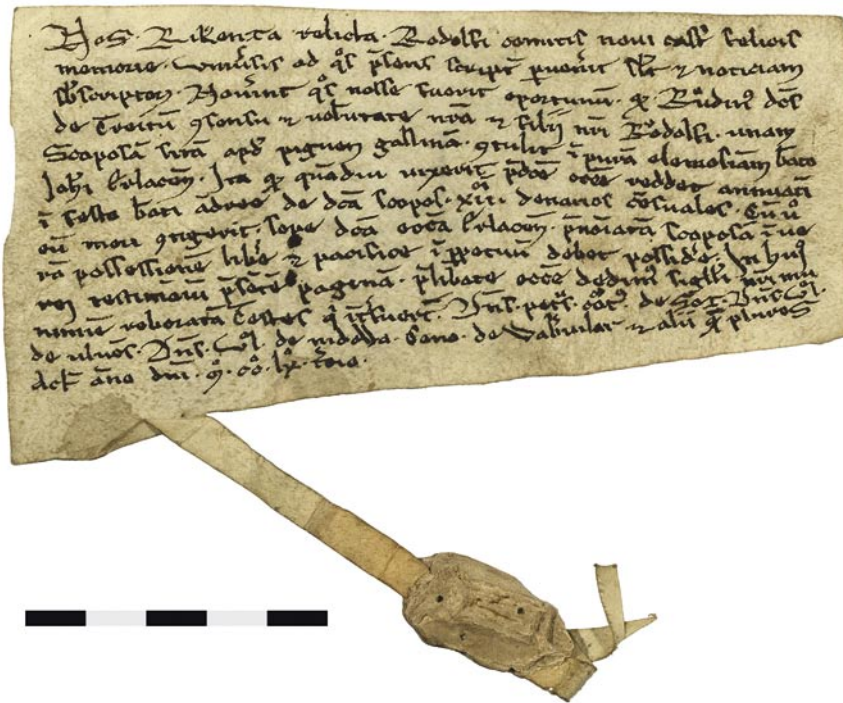 Nos . Rikenza relicta . Rodolfi comitis novi castr̄ felicis
memorie . univ̄sis ad q̊s p̄sens script̄ pvenīt slt̄ ⁊ noticiam
sb̄scriptoꝝ . Nov̄int q̊s nosse fuerit oportunū . ꝙ Růdinꝰ dn̄s
de Treitun ꝯsensu ⁊ volūtate nr̄a ⁊ filij nr̄i Rodolfi . unam
Scoposā sitā apd̄ pignon gallinā . ꝯtulit ī purā elemosinā bāto
Joh̄i Erlaceñ . Ita ꝙ quādiu vixerit p̄dc̄e ecc̄e reddet annuatī
ī festo bāti ādree de dc̄a scopos . xii . denarios cēsuales . Cū v̊
eū mori ꝯtigerit . sepe dc̄a ecc̄a Erlaceñ . p̄noīatā scoposā ī ve
rā possessionē libē ⁊ pacifice ī ppetuū debet possidē . In huiꝰ
rei testimoīu p̄sētē paginā . p̄libate ecc̄e dedimꝰ sigilli . nr̄i mu
nimīe roboratā Testes q̄ īt̄fuert̄ . Dn̄s . petrꝰ . de . Dn̄s . Vl̊ .
de ulvos . Dn̄s . Vl̊ . de . de Vabwilar . ⁊ alii q̄ plures
Act̄ āno dn̄i . ꝏ . cc̊ . lx̊ . t̄cio .